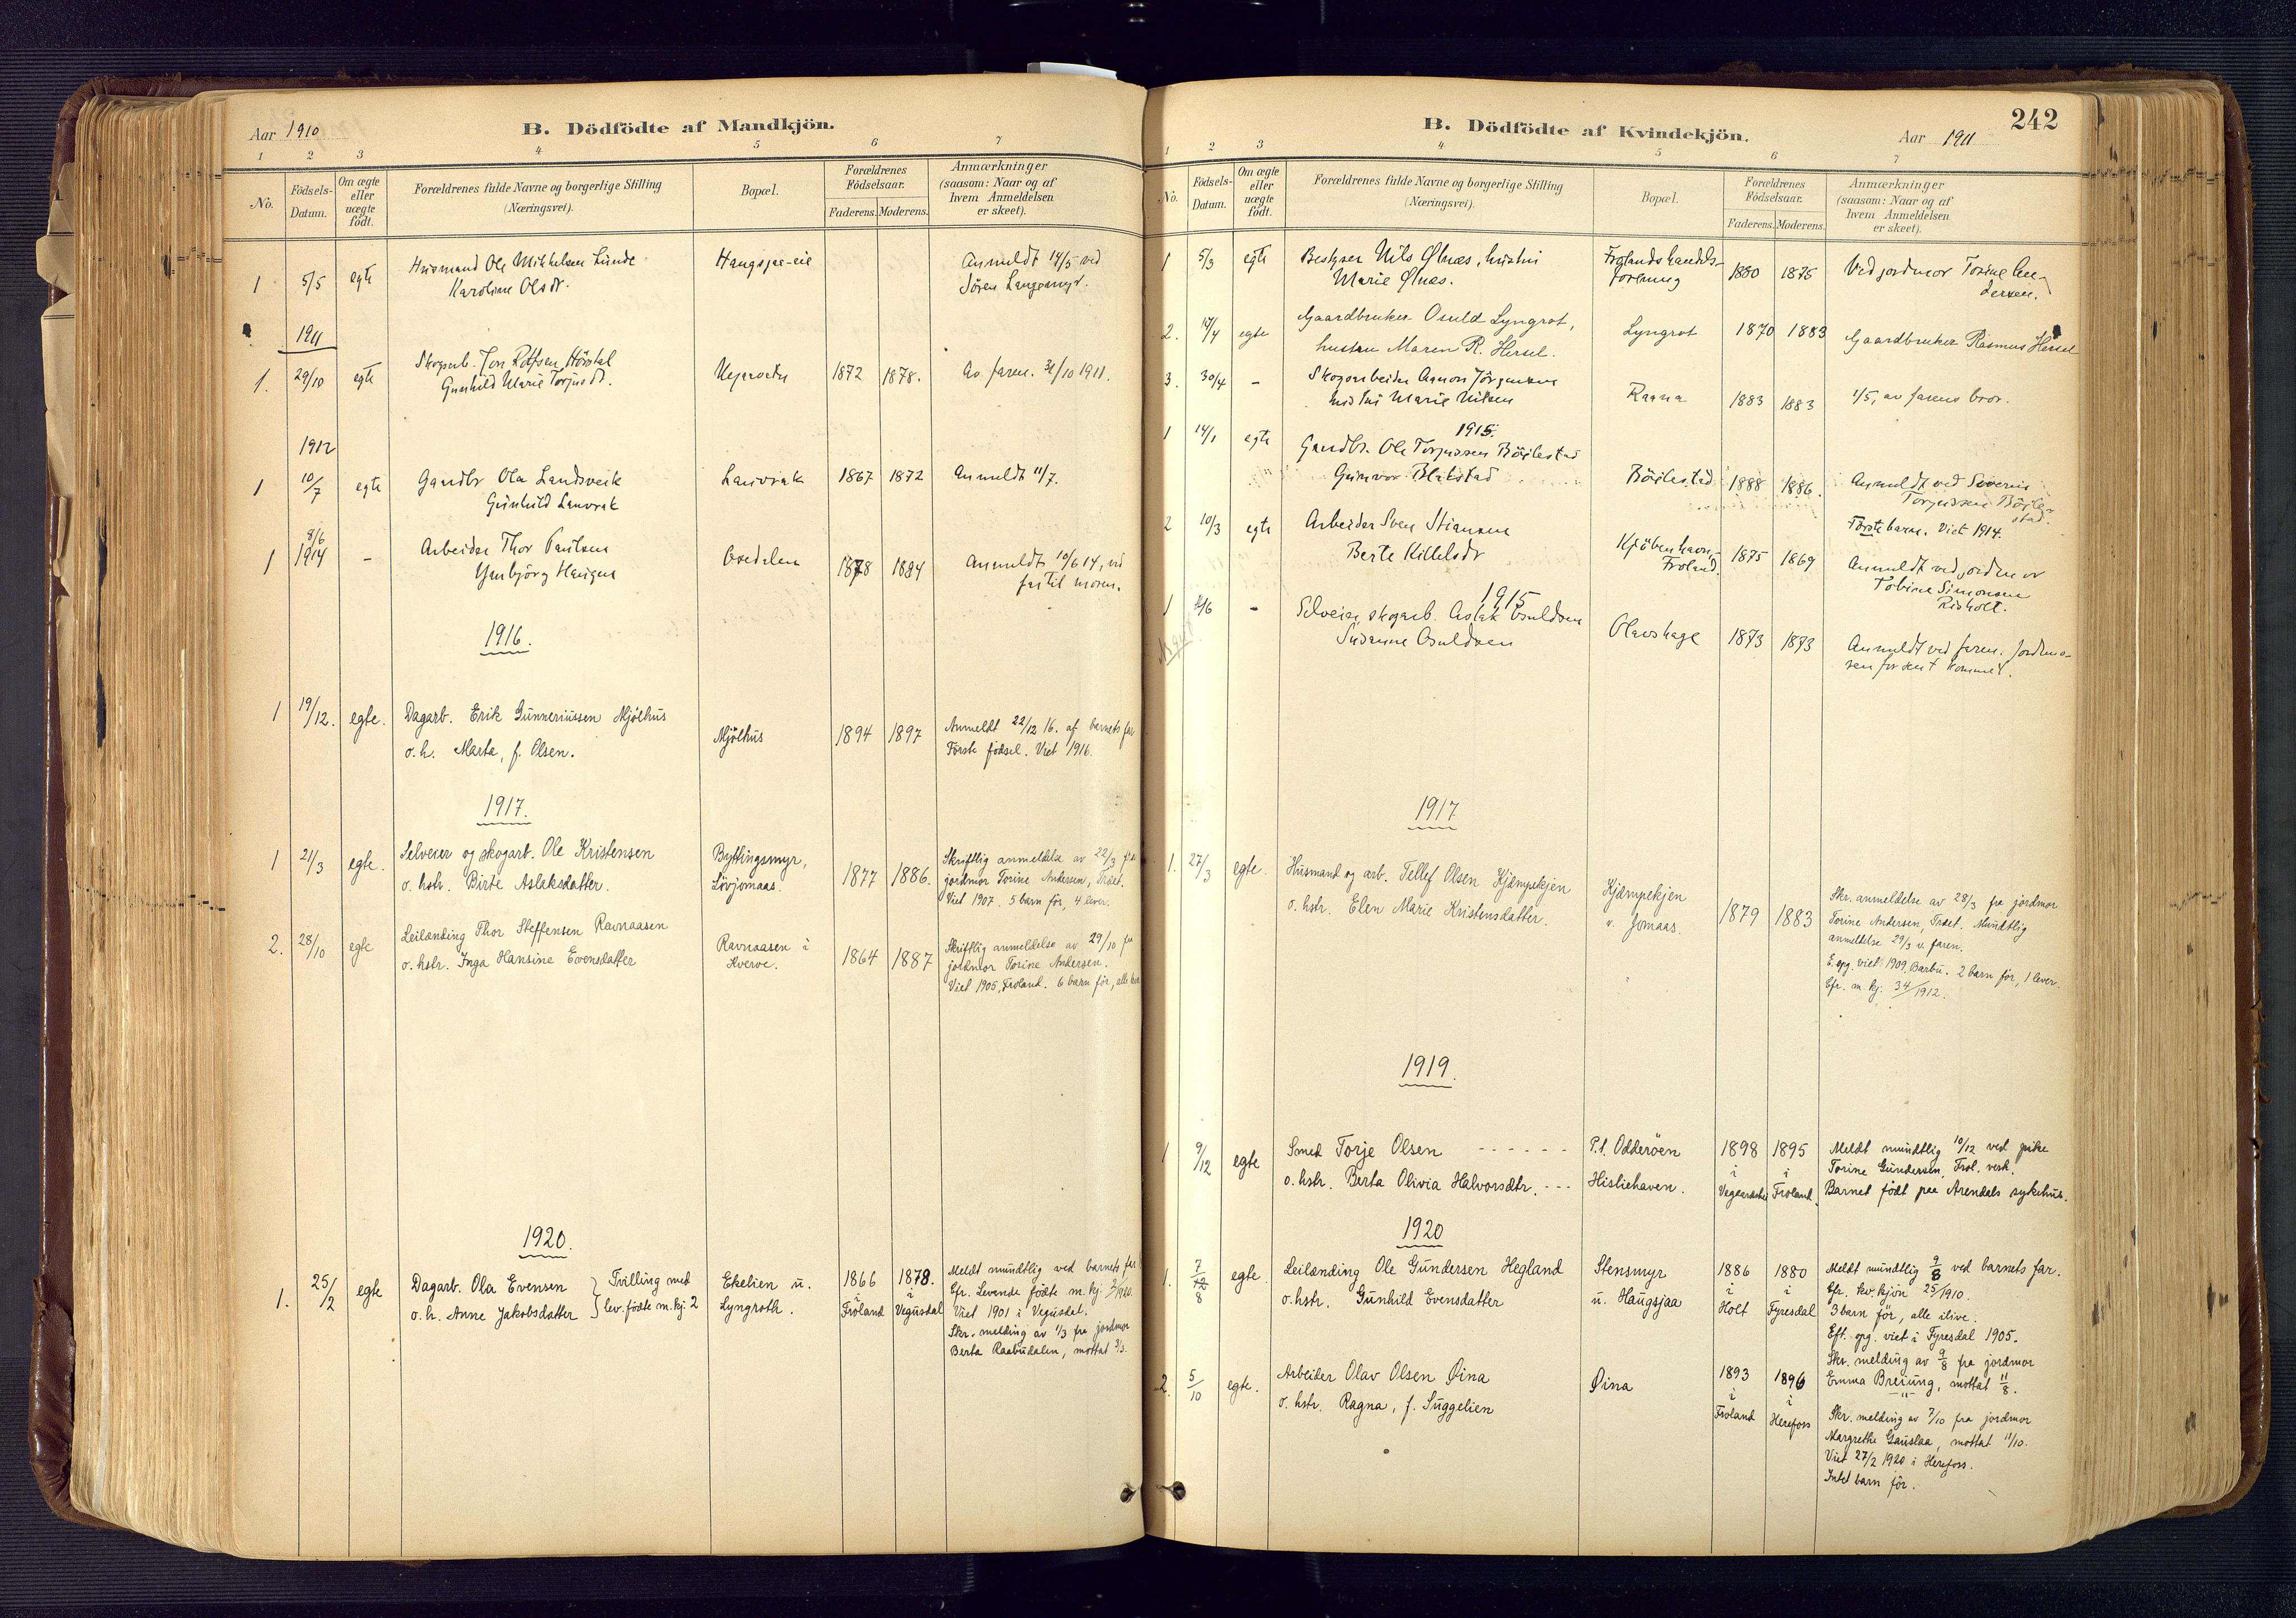 Aar 1910
B. Dödfödte af Mandkjön.
1 2 3 4 5 6 7
No.
Födsels-Datum.
Om ægte eller uægte födt.
Forældrenes fulde Navne og borgerlige Stilling
(Næringsvei).
Bopæl.
Forældrenes Födselsaar.
Faderens. Moderens.
Anmærkninger
(saasom: Naar og af
hvem Anmeldelsen
er skeet).
1 5/5 egte Husmand Ole Mikkelsen Lunde Haugsjaa-eie Anmeldt 14/5 ved
Karoline Olsdr. Sören Langemyr.
1911
1. 29/10 egte Skogarb. Jon Rolfsen Hörstal 1872 1878. Av faren. 31/10 1911.
Gunhild Marie Torjusdr.
1912
1 10/7 egte Gaardbr Ola Landsverk Lauvrak 1867 1872 Anmeldt 11/7.
Gunhild Lauvrak
1 8/6 1914 - Arbeider Thor Paulsen Osedalen 1878 1884 Anmeldt 10/6 14, ved
Ymbjörg Haugen far til moren.
1916.
1 19/12. egte. Dagarb. Erik Gunneriussen Mjölhus Mjölhus 1894 1897 Anmeldt 22/12 16. af barnets far
o. h. Marta, f. Olsen. Förste födsel. Viet 1916.
1917.
1 21/3 egte. Selveier og skogarb. Ole Kristensen Byttingsmyr, 1877 1886. Skriftlig anmeldelse av 22/3 fra
o. hstr. Birte Aslaksdatter. Lövjomaas. jordmor Torine Andersen, Træet.
Viet 1907. 5 barn för, 4 lever.
2. 28/10 egte Leilænding Thor Steffensen Ravnaasen Ravnaasen i 1864 1887 Skriftlig anmeldelse av 29/10 fra
o. hstr. Inga Hansine Evensdatter Hverve. jordmor Torine Andersen.
Viet 1905, Froland. 6 barn för, alle
1920.
1. 25/2 egte Dagarb. Ola Evensen } Tvilling med Ekelien u. 1866 1878. Meldt mundtlig ved barnets far
o. h. Anne Jakobsdatter } lev. födte m. kj. 2 Lyngroth. i Froland i Vegusdal Cfr. Levende födte m. kj. 2/1920.
Viet 1901 i Vegusdal.
Skr. melding av 1/3 fra jordmor
Berta Raabudalen, mottat 3/3.
242
B. Dödfödte af Kvindekjön.
Aar 1911
1 2 3 4 5 6 7
No.
Födsels-Datum.
Om ægte eller uægte födt.
Forældrenes fulde Navne og borgerlige Stilling
(Næringsvei).
Bopæl.
Forældrenes Födselsaar.
Faderens. Moderens.
Anmærkninger
(saasom: Naar og af
hvem Anmeldelsen
er skeet).
1 5/3 egte Bestyrer Nils Ølnæs, hustru Frolands handels- 1880 1875 Ved jordmor Torine An-
Marie Ølnæs. forening dersen.
2. 17/4 egte Gaardbruker Osuld Lyngrot, Lyngrot 1870 1883 Gaardbruker Rasmus Hersel
hustru Maren R. Hersel.
3. 30/4 - Skogarbeider Aanon Jörgensen Raana 1883 1883 1/5, av farens bror.
hustru Marie Nilsen
1915.
1 14/1 egte Gaardbr. Ole Torjussen Böilestad Böilestad 1888 1886. Anmeldt ved Severin
Gunvor Blakstad Torjussen Böile-
stad.
Förste barn. Viet 1914.
2 10/3 egte Arbeider Sven Stiansen Kjöbenhavn- 1875 1869 Anmeldt ved jordmor
Berte Kittelsdr Froland. Tobine Simonsen
Risholt.
1915
1 - Selveier, skogarb. Aslak Osuldsen Olavshage 1873 1873 Anmeldt ved faren. Jordmo-
Susanne Osuldsen ren for sent kommet.
1917
1. 27/3 egte. Husmand og arb. Tellef Olsen Kjæmpekjen Kjæmpekjen 1879 1883 Skr. anmeldelse av 28/3 fra jordmor
o. hstr. Elen Marie Kristensdatter. v. Jomaas. Torine Andersen, Træet. Mundtlig
anmeldelse 29/3 v. faren.
E. opg. viet 1909, Barbu. 2 barn för, 1 lever.
Cfr. m. kj. 34/1912.
1919.
1 9/12 egte Smed Torje Olsen P.t. Odderöen 1898 1895 Meldt mundtlig 10/12 ved
o. hstr. Berta Olivia Halvorsdtr. Hisliehaven. i Vegaardsh. i Froland. Torine Gundersen, Frol. verk.
Barnet födt paa Arendals sykehus.
1920
1. 7/8 egte. Leilænding Ole Gundersen Hegland Stensmyr 1886 1880 Meldt mundtlig 9/8 ved barnets far.
o. hstr. Gunhild Evensdatter u. Haugsjaa i Holt i Fyresdal Cfr. kv. kjön 25/1910.
3 barn för, alle ilive.
Eft. opg. viet i Fyresdal 1905.
Skr. melding av 9/8 fra jordmor
Emma Breiung, mottat 11/8.
2. 5/10 egte. Arbeider Olav Olsen Øina Øina 1893 1896 -"-
o. hstr. Ragna, f. Suggelien i Froland i Herefoss Skr. melding av 7/10 fra jordmor
Margrethe Gauslaa, mottat 11/10.
Viet 27/2 1920 i Herefoss.
Intet barn för.